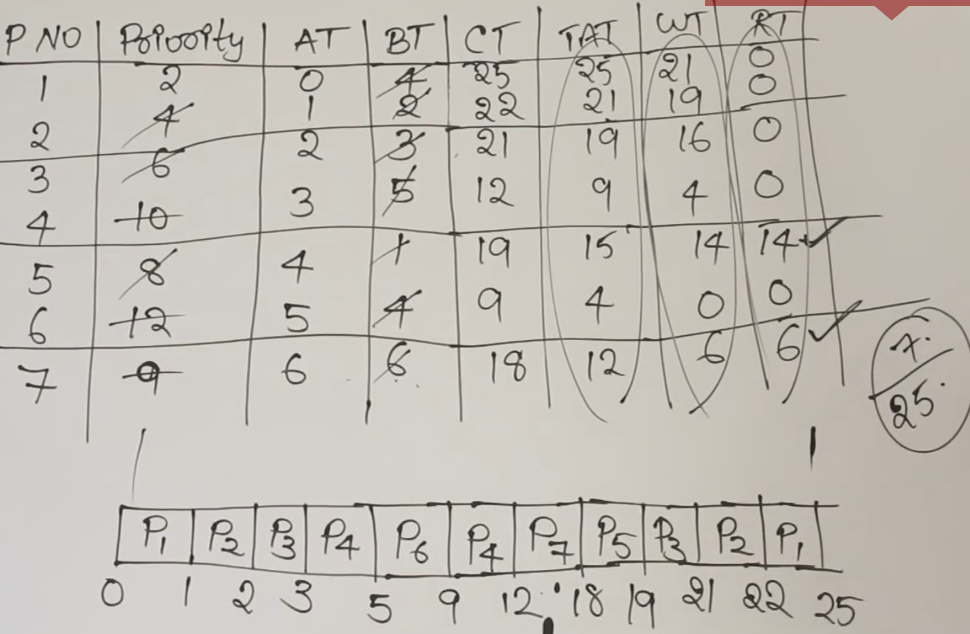 P NO Priority AT BT CT TAT WT RT
1 2 0 4 25 25 21 0
2 4 1 2 22 21 19 0
3 6 2 3 21 19 16 0
4 10 3 5 12 9 4 0
5 8 4 1 19 15 14 14 ✓
6 12 5 4 9 4 0 0
7 9 6 6 18 12 6 6 ✓
7
25
P1 P2 P3 P4 P6 P4 P7 P5 P3 P2 P1
0 1 2 3 5 9 12 18 19 21 22 25